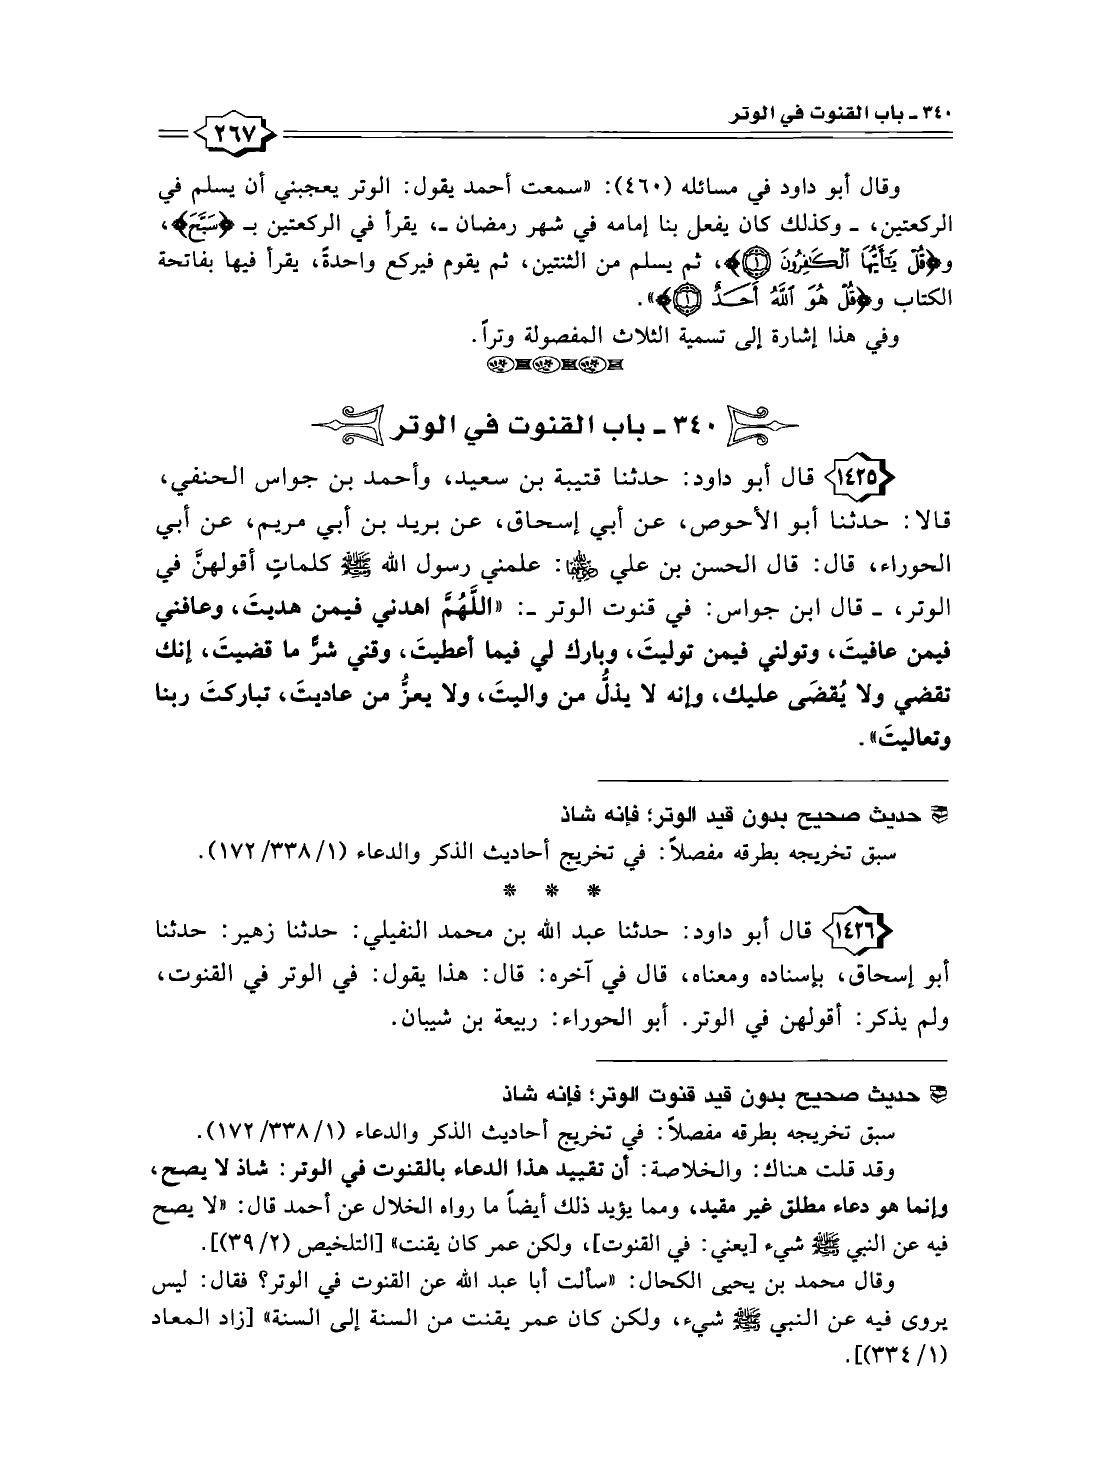 ٣٤٠ ـ باب القنوت في الوتر
٢٦٧
وقال أبو داود في مسائله (٤٦٠): «سمعت أحمد يقول: الوتر يعجبني أن يسلم في
الركعتين، ـ وكذلك كان يفعل بنا إمامه في شهر رمضان ـ، يقرأ في الركعتين بـ ﴿سَبَّحَ﴾،
و﴿قُلْ يَٰٓأَيُّهَا ٱلْكَٰفِرُونَ ۝١﴾، ثم يسلم من الثنتين، ثم يقوم فيركع واحدةً، يقرأ فيها بفاتحة
الكتاب و﴿قُلْ هُوَ ٱللَّهُ أَحَدٌ ۝١﴾».
وفي هذا إشارة إلى تسمية الثلاث المفصولة وتراً.
٣٤٠ ـ باب القنوت في الوتر
١٤٢٥ قال أبو داود: حدثنا قتيبة بن سعيد، وأحمد بن جواس الحنفي،
قالا: حدثنا أبو الأحوص، عن أبي إسحاق، عن بريد بن أبي مريم، عن أبي
الحوراء، قال: قال الحسن بن علي ﵄: علمني رسول الله ﷺ كلماتٍ أقولهنَّ في
الوتر، ـ قال ابن جواس: في قنوت الوتر ـ: «اللَّهُمَّ اهدني فيمن هديتَ، وعافني
فيمن عافيتَ، وتولني فيمن توليتَ، وبارك لي فيما أعطيتَ، وقني شرَّ ما قضيتَ، إنك
تقضي ولا يُقضَى عليك، وإنه لا يذلُّ من واليتَ، ولا يعزُّ من عاديتَ، تباركتَ ربنا
وتعاليتَ».
حديث صحيح بدون قيد الوتر؛ فإنه شاذ
سبق تخريجه بطرقه مفصلاً: في تخريج أحاديث الذكر والدعاء (١/ ٣٣٨/ ١٧٢).
* * *
١٤٢٦ قال أبو داود: حدثنا عبد الله بن محمد النفيلي: حدثنا زهير: حدثنا
أبو إسحاق، بإسناده ومعناه، قال في آخره: قال: هذا يقول: في الوتر في القنوت،
ولم يذكر: أقولهن في الوتر. أبو الحوراء: ربيعة بن شيبان.
حديث صحيح بدون قيد قنوت الوتر؛ فإنه شاذ
سبق تخريجه بطرقه مفصلاً: في تخريج أحاديث الذكر والدعاء (١/ ٣٣٨/ ١٧٢).
وقد قلت هناك: والخلاصة: أن تقييد هذا الدعاء بالقنوت في الوتر: شاذ لا يصح،
وإنما هو دعاء مطلق غير مقيد، ومما يؤيد ذلك أيضاً ما رواه الخلال عن أحمد قال: «لا يصح
فيه عن النبي ﷺ شيء [يعني: في القنوت]، ولكن عمر كان يقنت» [التلخيص (٢/ ٣٩)].
وقال محمد بن يحيى الكحال: «سألت أبا عبد الله عن القنوت في الوتر؟ فقال: ليس
يروى فيه عن النبي ﷺ شيء، ولكن كان عمر يقنت من السنة إلى السنة» [زاد المعاد
(١/ ٣٣٤)].